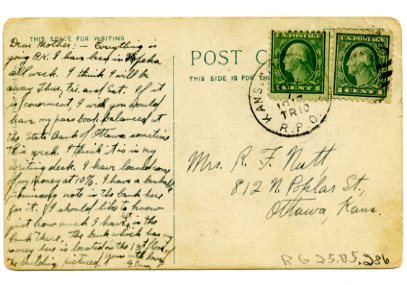 THIS SPACE FOR WRITING
Dear Mother:— Everything is
going O.K. I have been in Topeka
all week. I think I will be
away Thus, Fri. and Sat. If it
is convenient, I wish you would
have my pass book balanced at
the State Bank of Ottawa sometime
this week. I think it is in my
writing desk. I have loaned some
of my money at 10%. I have a bankable
note in the bank here
for it. I should like to know
just how much I have in the
bank there. The bank which has my
money here is located on the 1st floor
of the building pictured. Yours with love,
POST C
THIS SIDE IS FOR THE
KANS.
TR 10
R.P.O.
Mrs. R. F. Nutt
812 N. Poplar St.,
Ottawa Kans.
RG 25.05.236